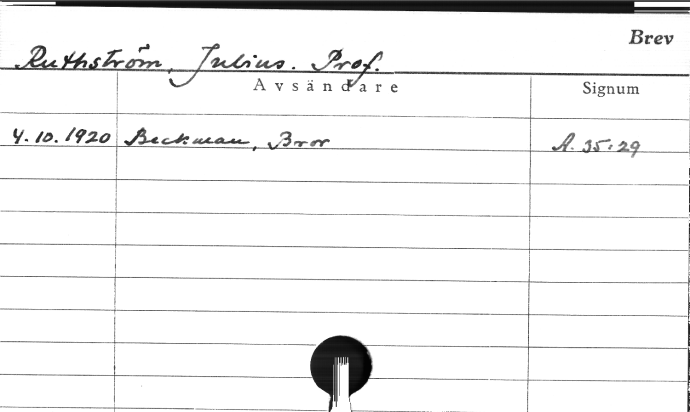 Brev
Ruthström, Julius. Prof.
Avsändare Signum
4.10.1920 Beckman, Bror A. 35:29